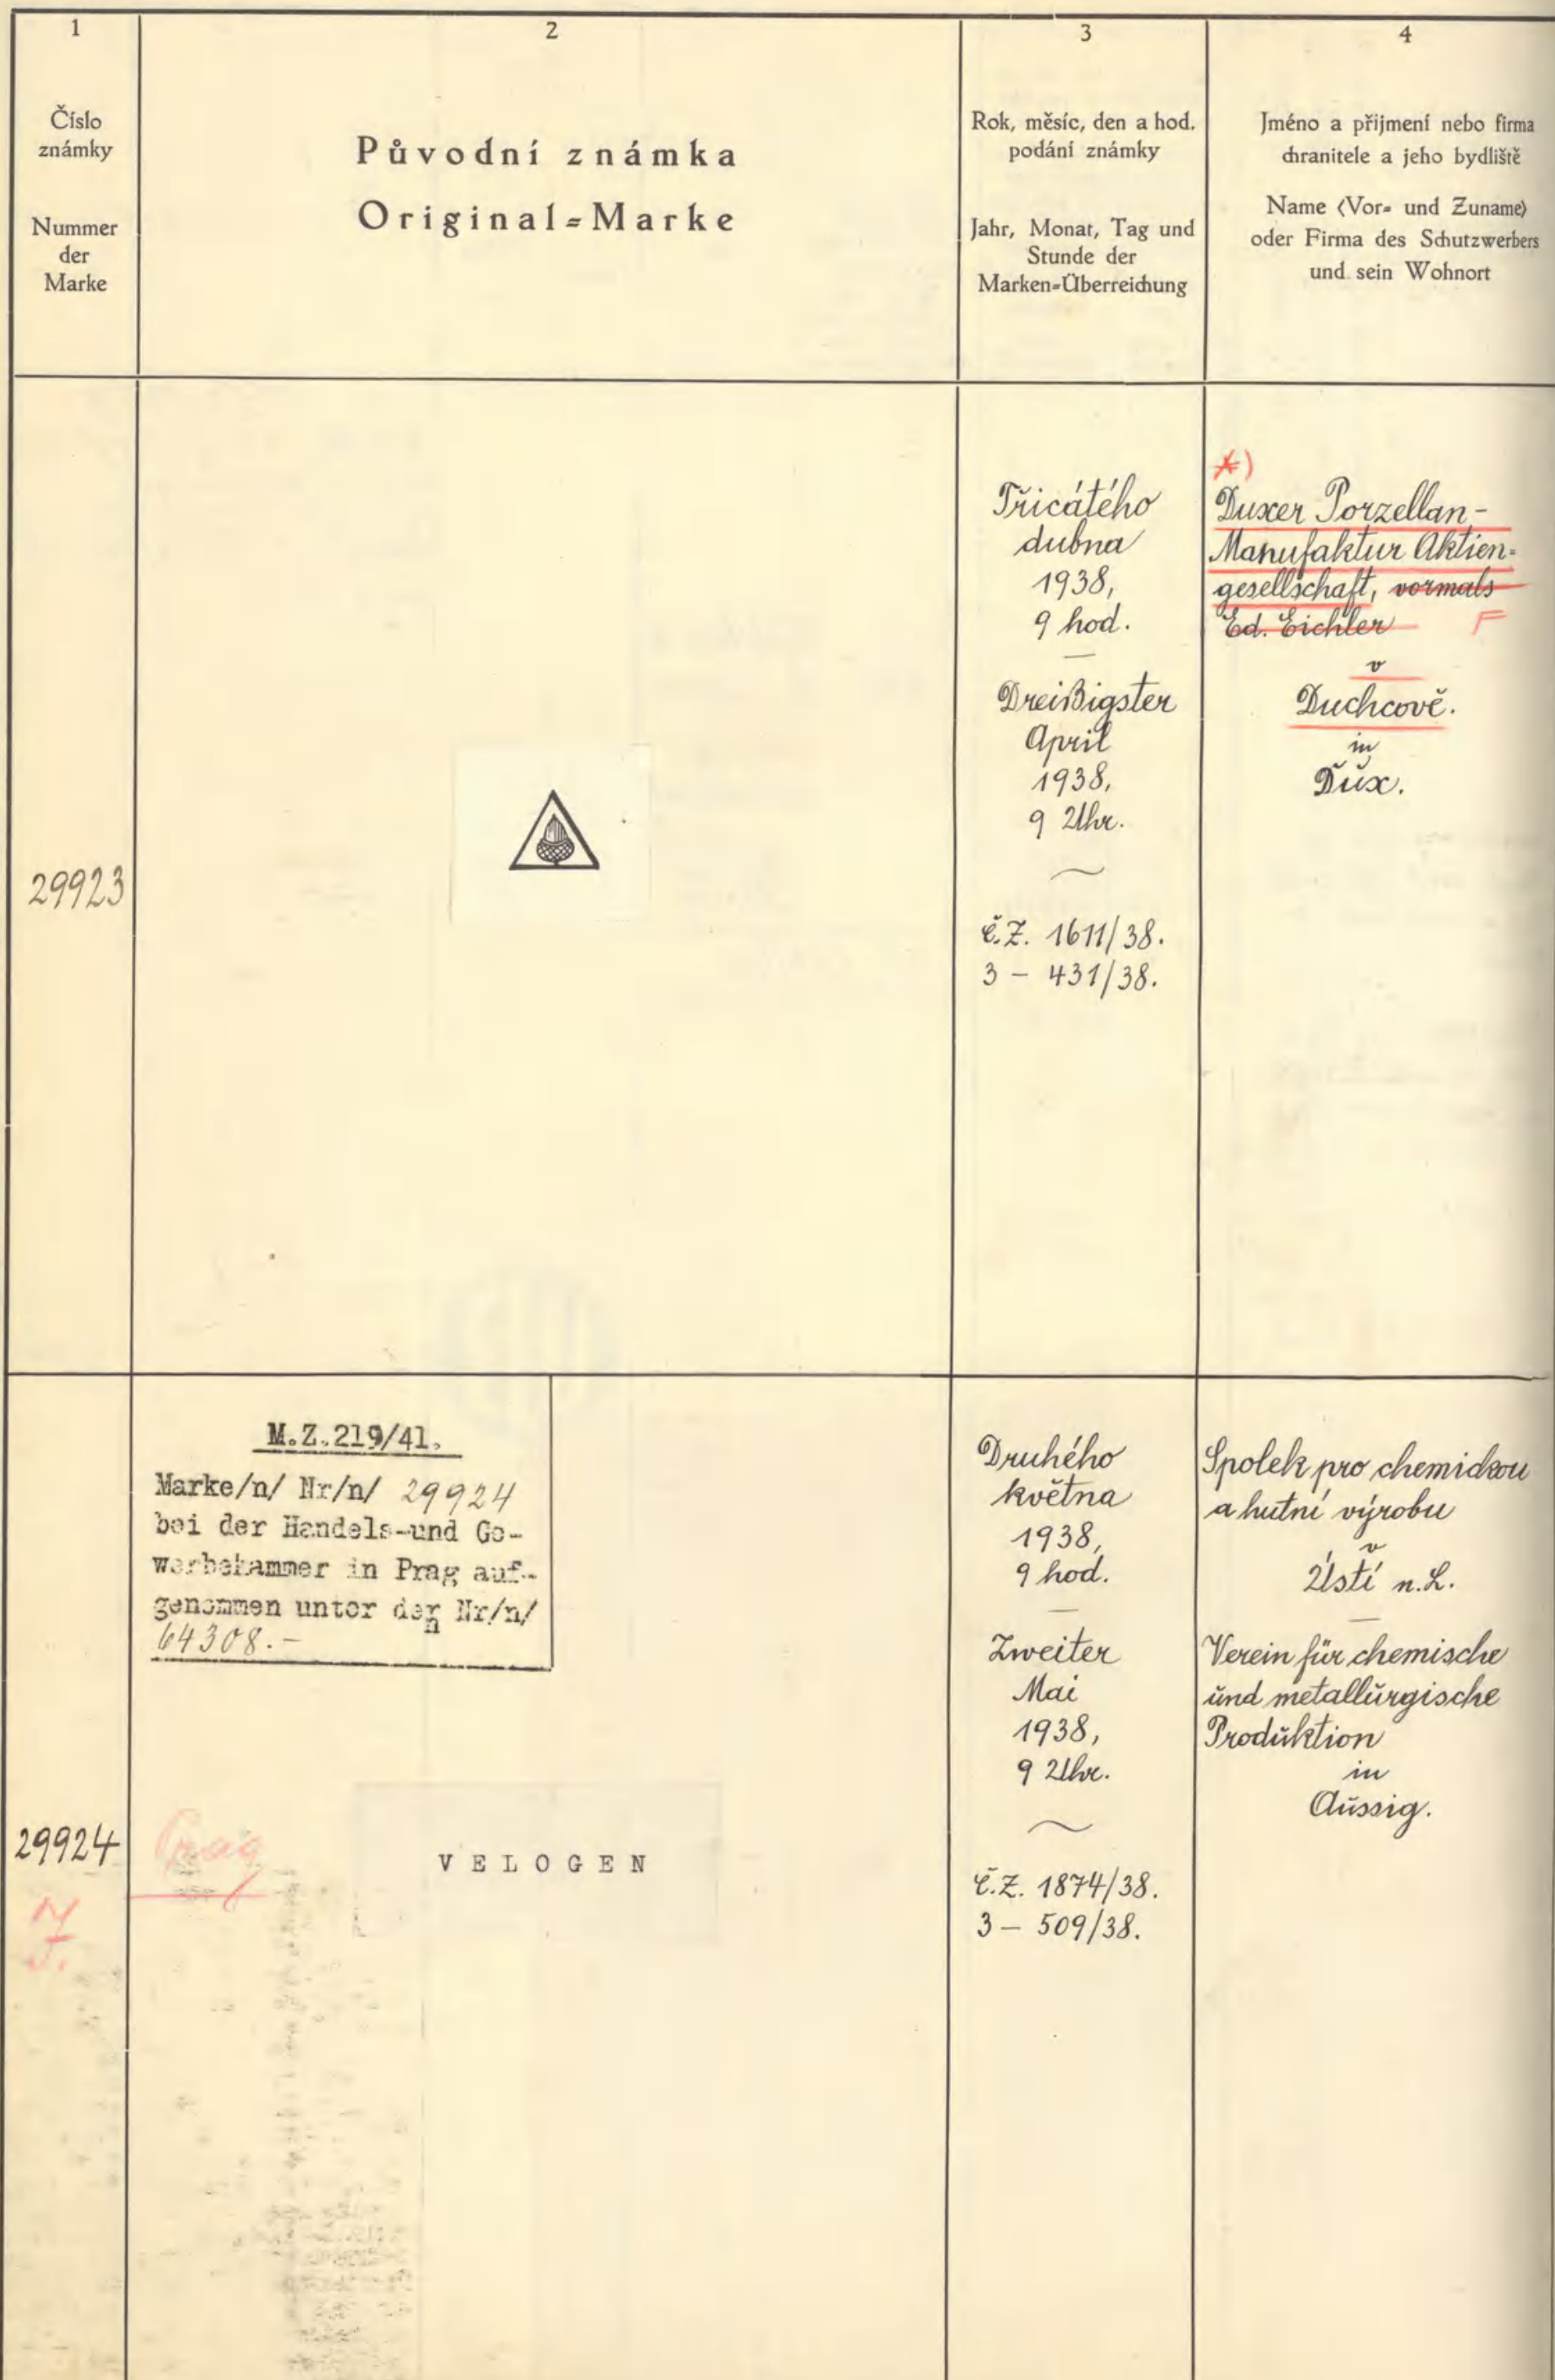 1
Číslo
známky
Nummer
der
Marke
2
Původní známka
Original=Marke
3
Rok, měsíc, den a hod.
podání známky
Jahr, Monat, Tag und
Stunde der
Marken=Überreichung
4
Jméno a přijmení nebo firma
chranitele a jeho bydliště
Name (Vor= und Zuname)
oder Firma des Schutzwerbers
und sein Wohnort
29923
Třicátého
dubna
1938,
9 hod.
Dreißigster
April
1938,
9 Uhr.
č.Z. 1611/38.
3 - 431/38.
*)
Duxer Porzellan-
Manufaktur Aktien=
gesellschaft, vormals
Ed. Eichler F
v
Duchcově.
in
Dux.
29924
M.Z.219/41.
Marke/n/ Nr/n/ 29924
bei der Handels-und Ge-
werbekammer in Prag auf-
genommen unter den Nr/n/
64308.-
Prag
VELOGEN
Druhého
května
1938,
9 hod.
Zweiter
Mai
1938,
9 Uhr.
Č.Z. 1874/38.
3 - 509/38.
Spolek pro chemickou
a hutní výrobu
v
Ústí n.L.
Verein für chemische
und metallurgische
Produktion
in
Aussig.